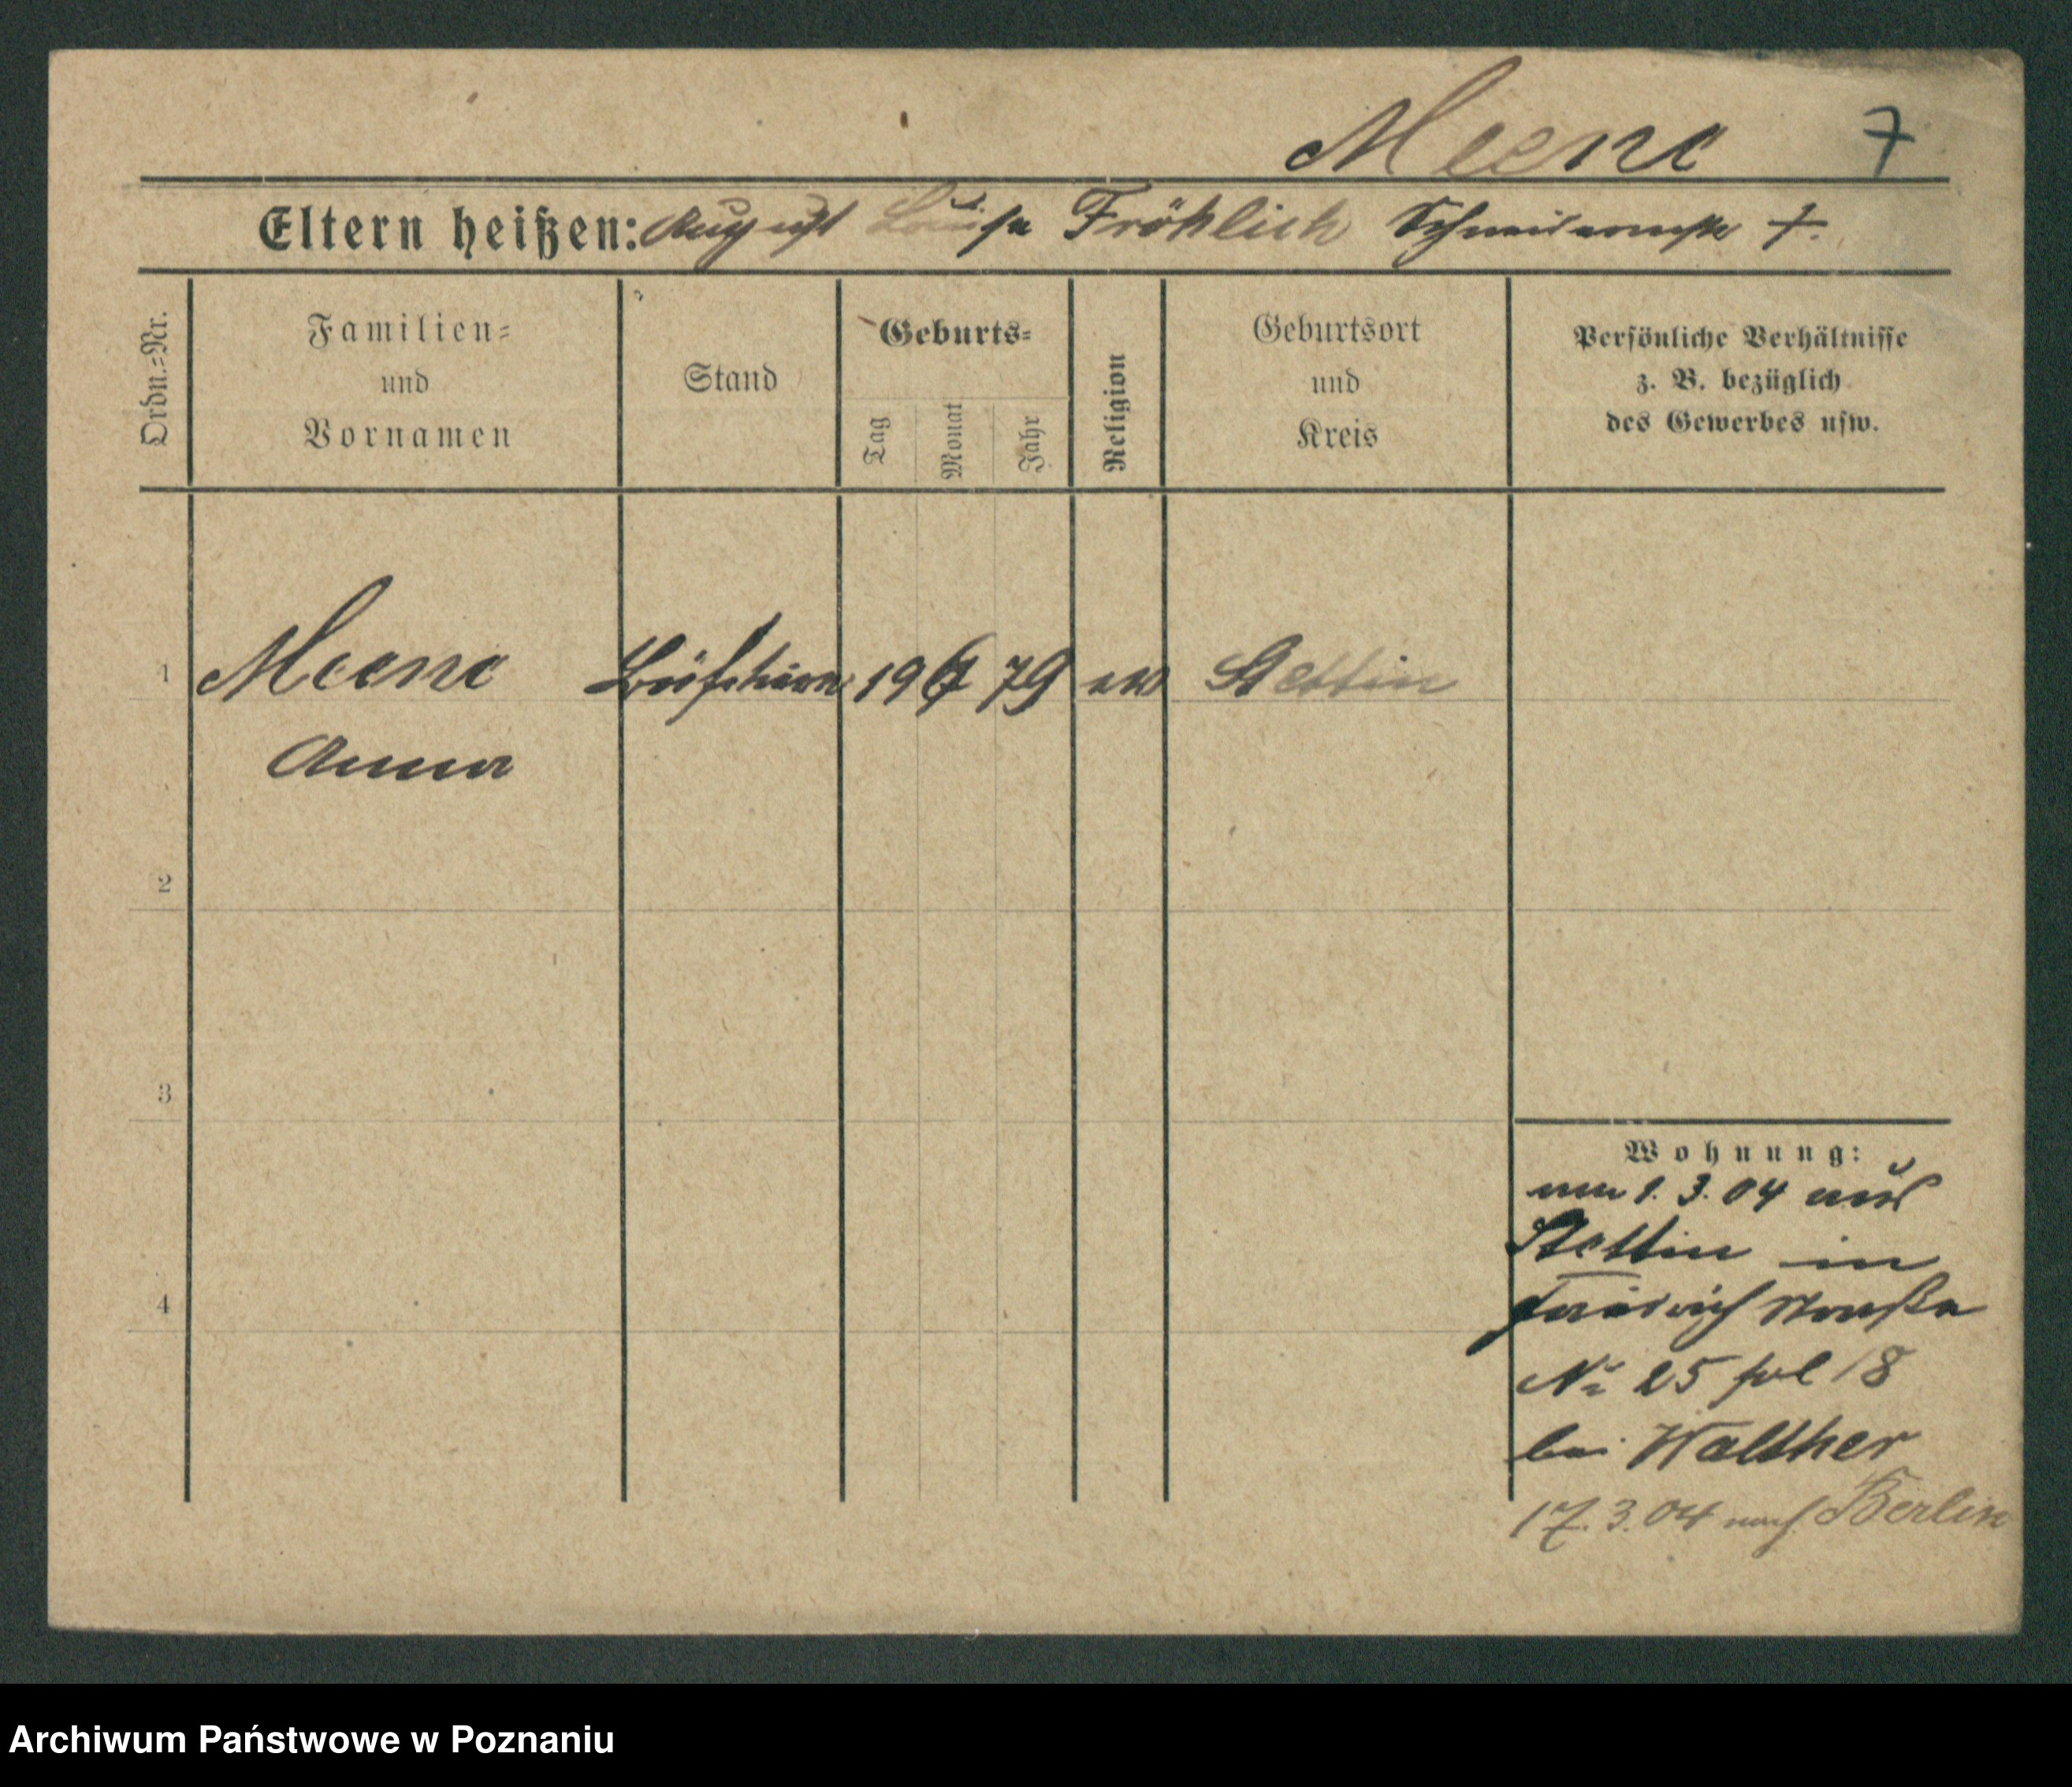 Meene 7
Eltern heißen: August Luise Fröhlich Schneidermstr †.
Ordn.=Nr.
Familien=
und
Vornamen
Stand
Geburts=
Tag
Monat
Jahr
Religion
Geburtsort
und
Kreis
Persönliche Verhältnisse
z. B. bezüglich
des Gewerbes usw.
1 Meene 19 79 ev Stettin
Anna
2
3
4
Wohnung:
1. 3. 04 aus
Stettin in
Friedrichstraße
No 25 pol 18
bei Walther
17. 3. 04 nach Berlin
Archiwum Państwowe w Poznaniu